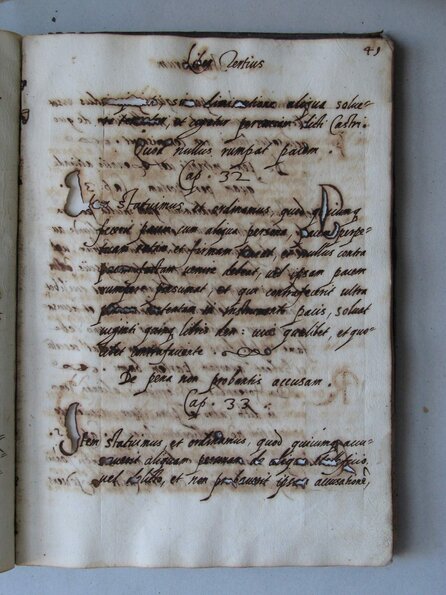 49
Liber Tertius
sine diminutione aliqua solue-
re et cogatur per curiam dicti Castri.
Quod nullus rumpat pacem.
Cap. 32
Item statuimus et ordinamus, quod quicumq
fecerit pacem cum aliqua persona, pacem perpe-
tuam et firmam et nullus contra
pacem venire debeat, vel ipsam pacem
rumpere presumat et qui contrafecerit ultra
penam in instrumento pacis, soluat
viginti quinq libras den: vice qualibet, et quo-
libet contrafaciente
De pena non probantis accusam.
Cap 33
Item statuimus, et ordinamus, quod quicunq accu-
sauerit aliquam personam de aliquo
vel delicto, et non probauerit ipsam accusatione,